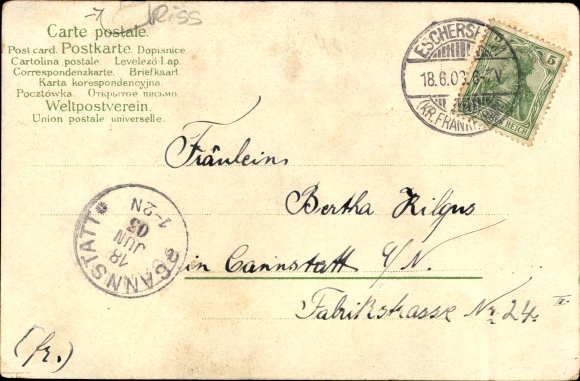 RISS
Carte postale.
Post card. Postkarte. Dopisnice
Cartolina postale. Levelező-Lap.
Correspondenzkarte. Briefkaart.
Karta korespondencyjna.
Pocztówka. Открытое письмо.
Weltpostverein.
Union postale universelle.
18.6.03.
(KR. FRANKF
5
REICH
Fräulein
Bertha Kilgus
in Cannstatt a/N.
Fabrikstrasse Nr. 24. II.
CANNSTATT
18
JUN
03
1-2N
(fr.)